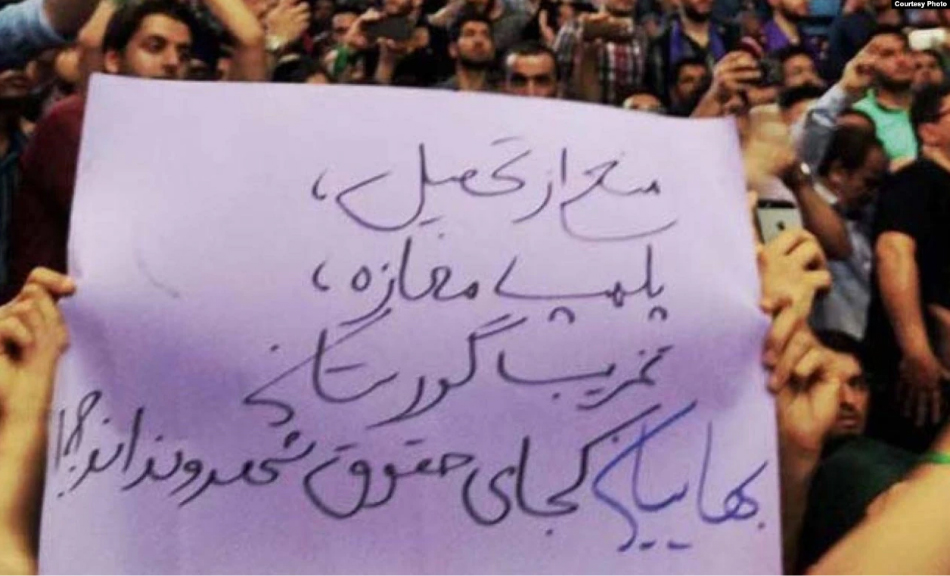 Courtesy Photo
منع از تحصیل،
پلمپ مغازه،
تخریب گورستان
بهاییان کجای حقوق شهروندی اند؟!